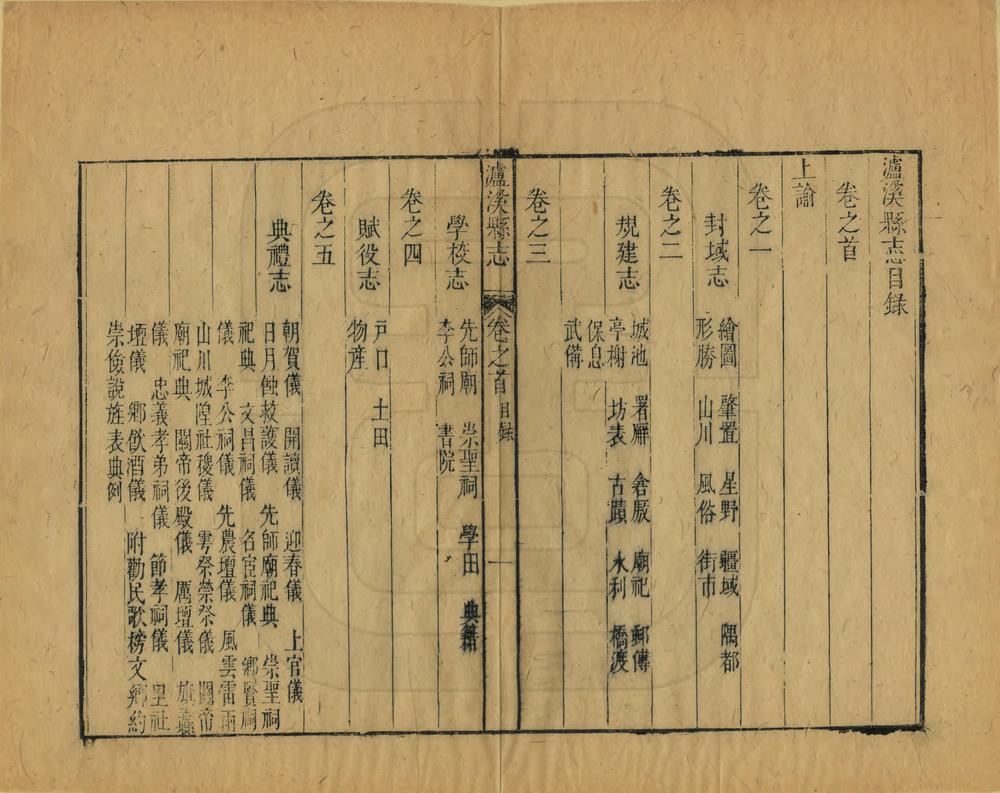 瀘溪縣志目錄
卷之首
上諭
卷之一
封域志
繪圖 肇置 星野 疆域 隅都
形勝 山川 風俗 街市
卷之二
規建志
城池 署廨 倉廒 廟祀 郵傳
亭榭 坊表 古蹟 水利 橋渡
保息
武備
卷之三
瀘溪縣志 卷之首 目錄 一
學校志
先師廟 崇聖祠 學田 典籍
李公祠 書院
卷之四
賦役志
戸口 土田
物產
卷之五
典禮志
朝賀儀 開讀儀 迎春儀 上官儀
日月蝕救護儀 先師廟祀典 崇聖祠
祀典 文昌祠儀 名宦祠儀 鄉賢祠
儀 李公祠儀 先農壇儀 風雲雷雨
山川城隍社稷儀 雩祭禜祭儀 關帝
廟祀典 關帝後殿儀 厲壇儀 旗纛
儀 忠義孝弟祠儀 節孝祠儀 里社
壇儀 鄉飲酒儀 附勸民歌榜文 鄉約
崇儉說旌表典例